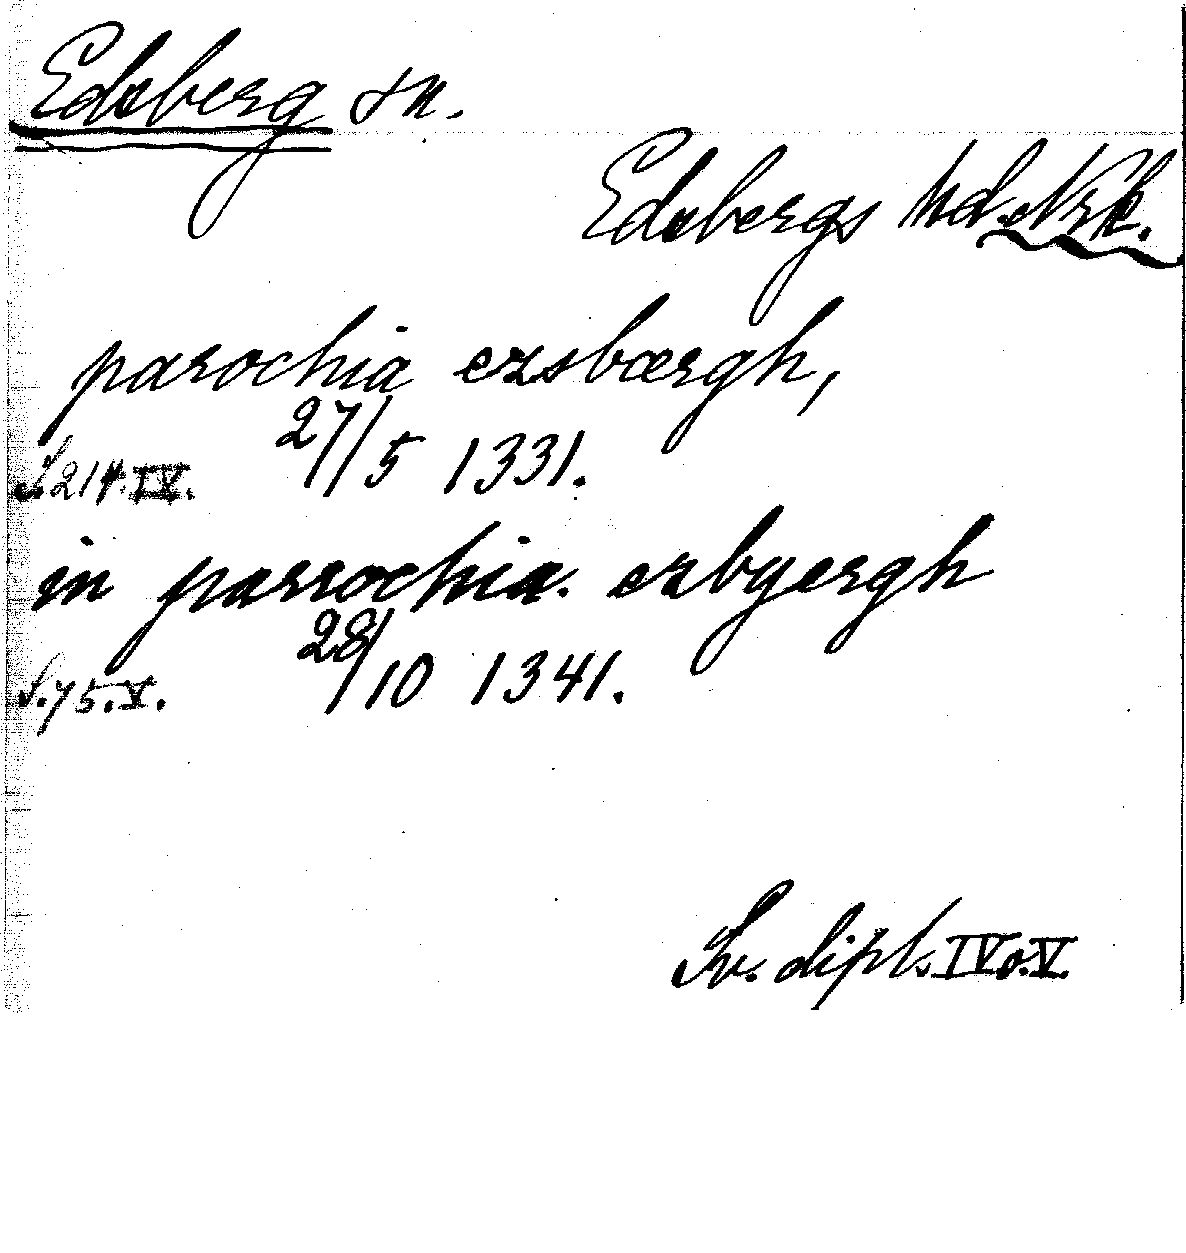 Edsberg sn.
Edsbergs hd. Nrk.
parochia ezsbærgh,
27/5 1331.
S. 214. IV.
in parrochia. ezbyergh
28/10 1341.
S. 75. V.
Sv. dipl. IV o. V.